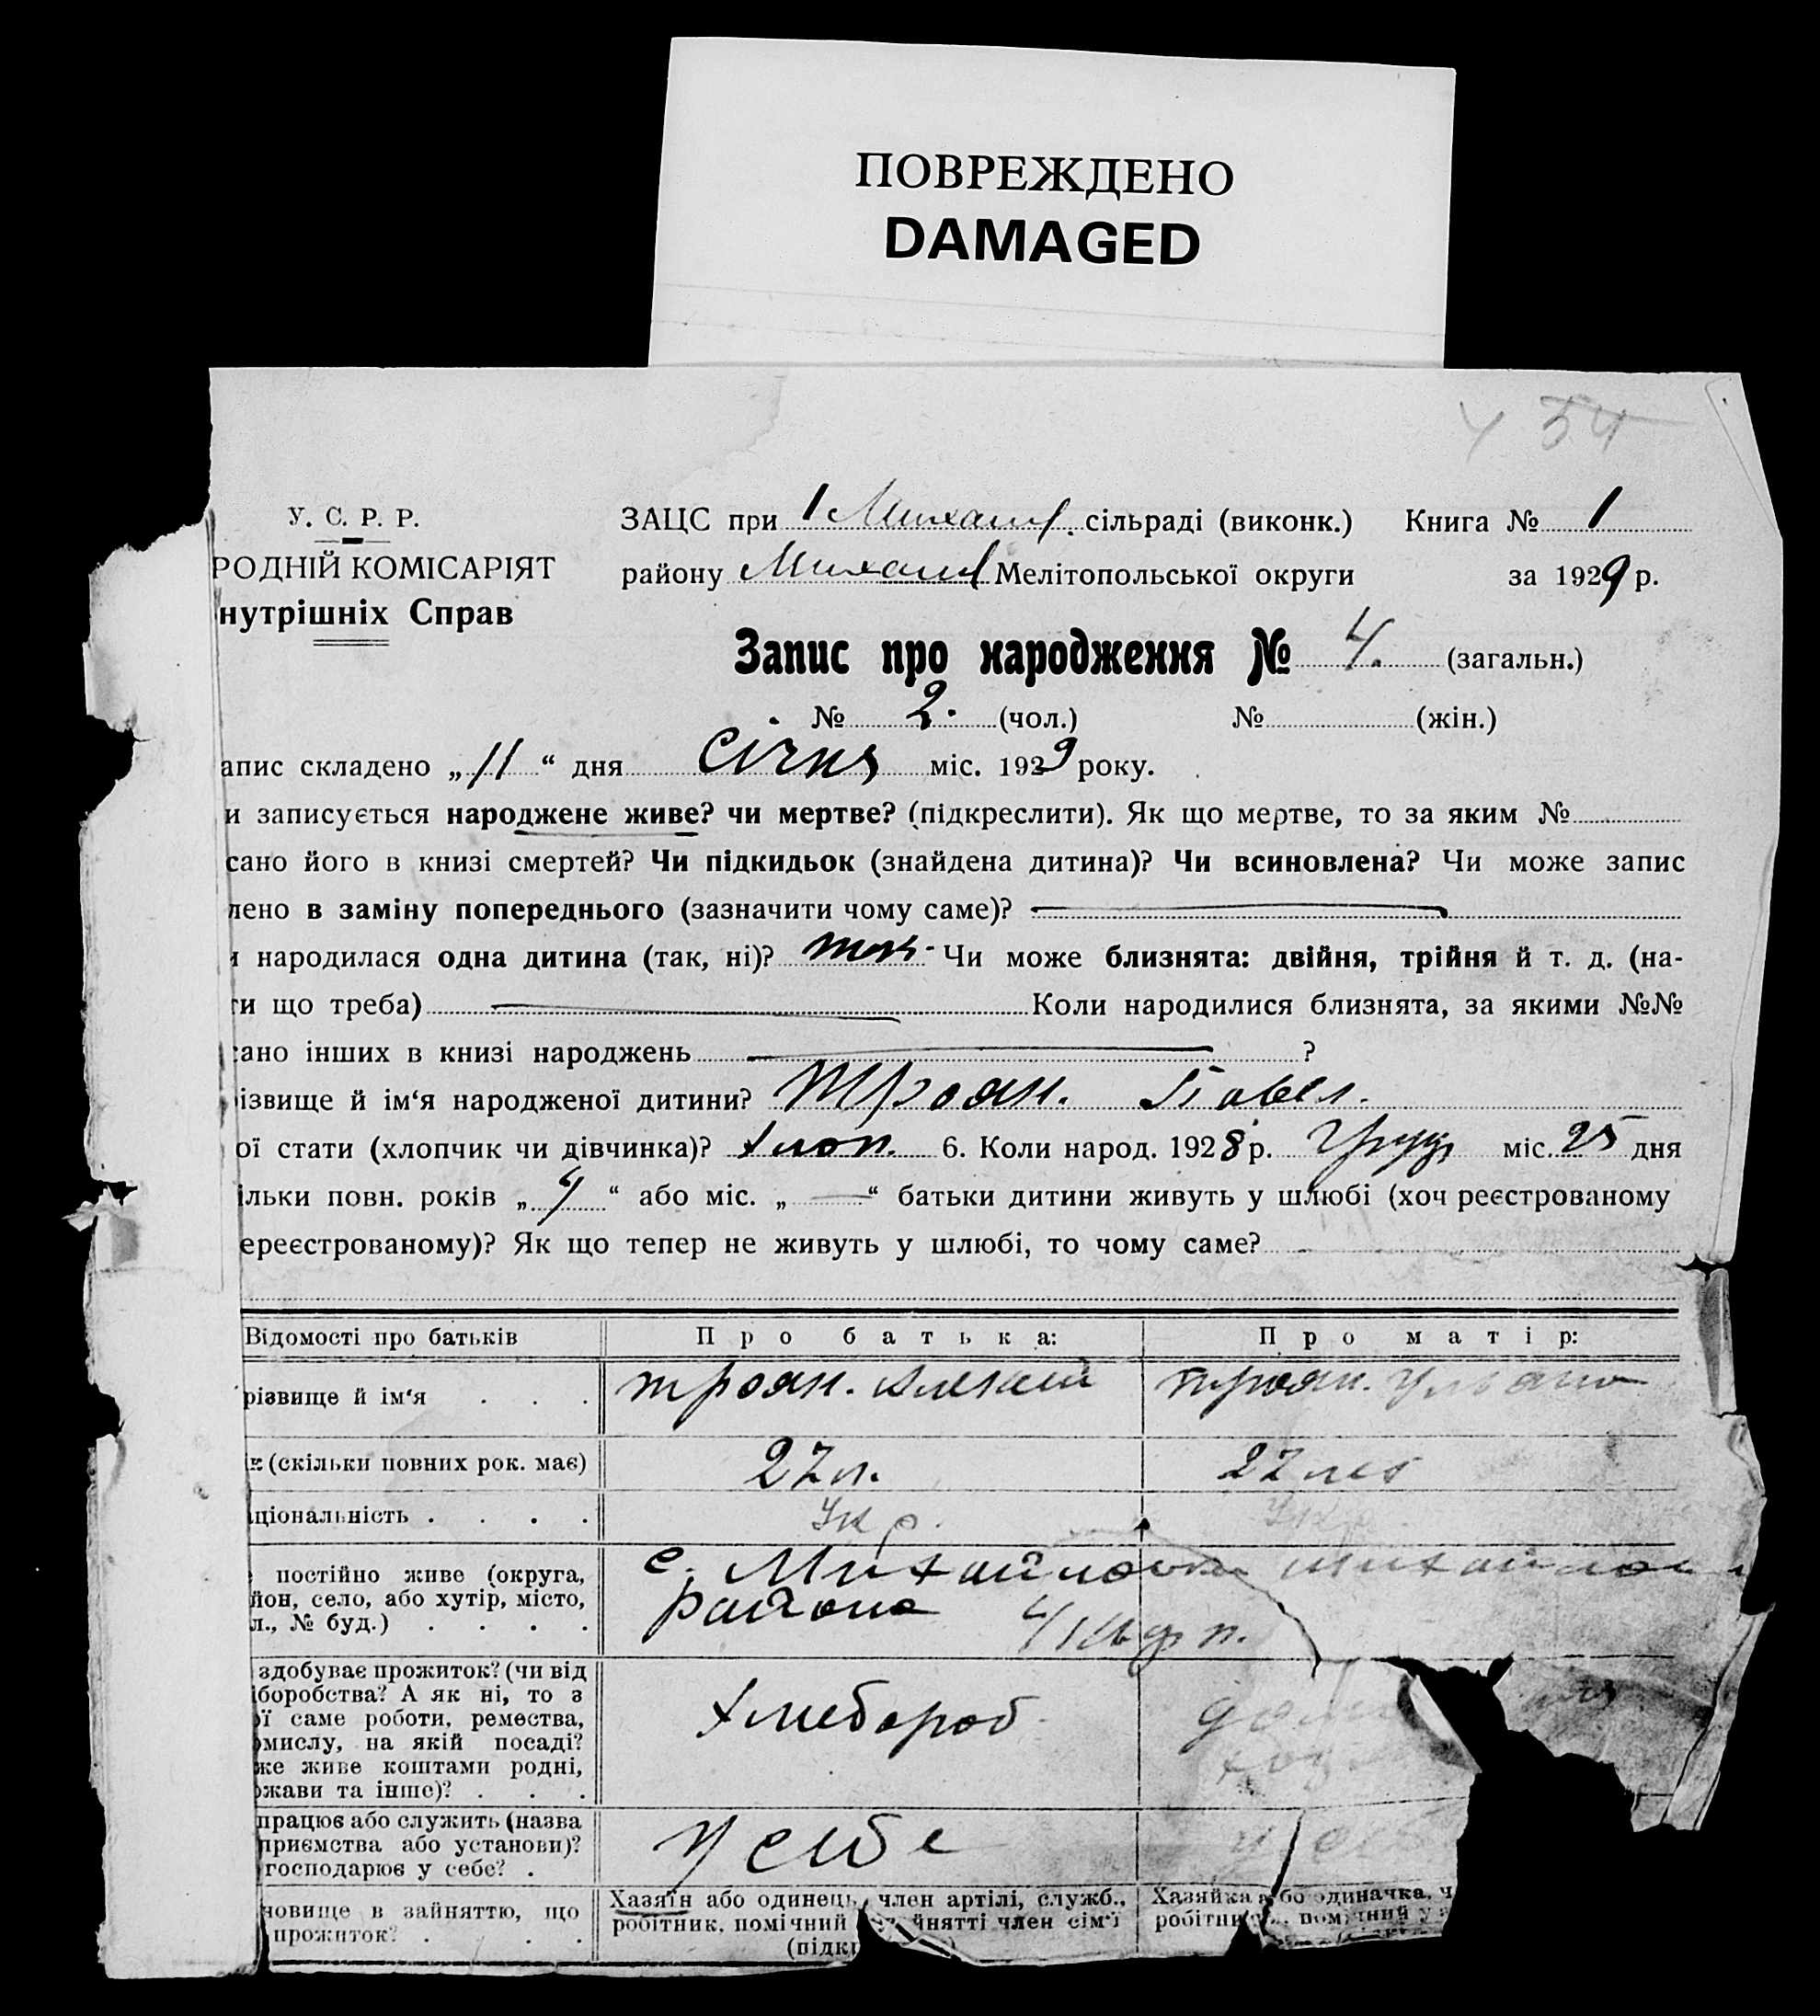 ПОВРЕЖДЕНО
DAMAGED
4 54
У. С. Р. Р.
РОДНІЙ КОМІСАРІЯТ
нутрішніх Справ
ЗАЦС при 1 Михайл. сільраді (виконк.) Книга № 1
району Михайл Мелітопольської округи за 1929 р.
Запис про народження № 4. (загальн.)
№ 2. (чол.) № (жін.)
апис складено „11“ дня січня міс. 1929 року.
и записується народжене живе? чи мертве? (підкреслити). Як що мертве, то за яким №
сано його в книзі смертей? Чи підкидьок (знайдена дитина)? Чи всиновлена? Чи може запис
лено в заміну попереднього (зазначити чому саме)?
и народилася одна дитина (так, ні)? так. Чи може близнята: двійня, трійня й т. д. (на-
ти що треба) Коли народилися близнята, за якими №№
сано інших в книзі народжень ?
різвище й ім‘я народженої дитини? Троян. Павел.
ої стати (хлопчик чи дівчинка)? хлоп. 6. Коли народ. 1928 р. Груд міс. 25 дня
ільки повн. років „4“ або міс. „—“ батьки дитини живуть у шлюбі (хоч реєстрованому
ереєстрованому)? Як що тепер не живуть у шлюбі, то чому саме?
Відомості про батьків Про батька: Про матір:
різвище й ім‘я . . . Троян. Алексей Троян. Ульяна
ік (скільки повних рок. має) 27 л. 27 лет
аціональність . . . . Укр. Укр.
постійно живе (округа,
йон, село, або хутір, місто,
л., № буд.) . . . .
с. Михайловки Михайлов
района
здобуває прожиток? (чи від
боробства? А як ні, то з
ої саме роботи, ремества,
омислу, на якій посаді?
же живе коштами родні,
ржави та інше)? . . .
хлебороб
дом
працює або служить (назва
приємства або установи)?
господарює у себе? .
у себе у себ
новище в зайняттю, що
прожиток? . . .
Хазяїн або одинець, член артілі, служб.,
робітник, помічний у зайнятті член сім‘ї
(підк
Хазяйка або одиначка, ч
робітниця, помічний у з